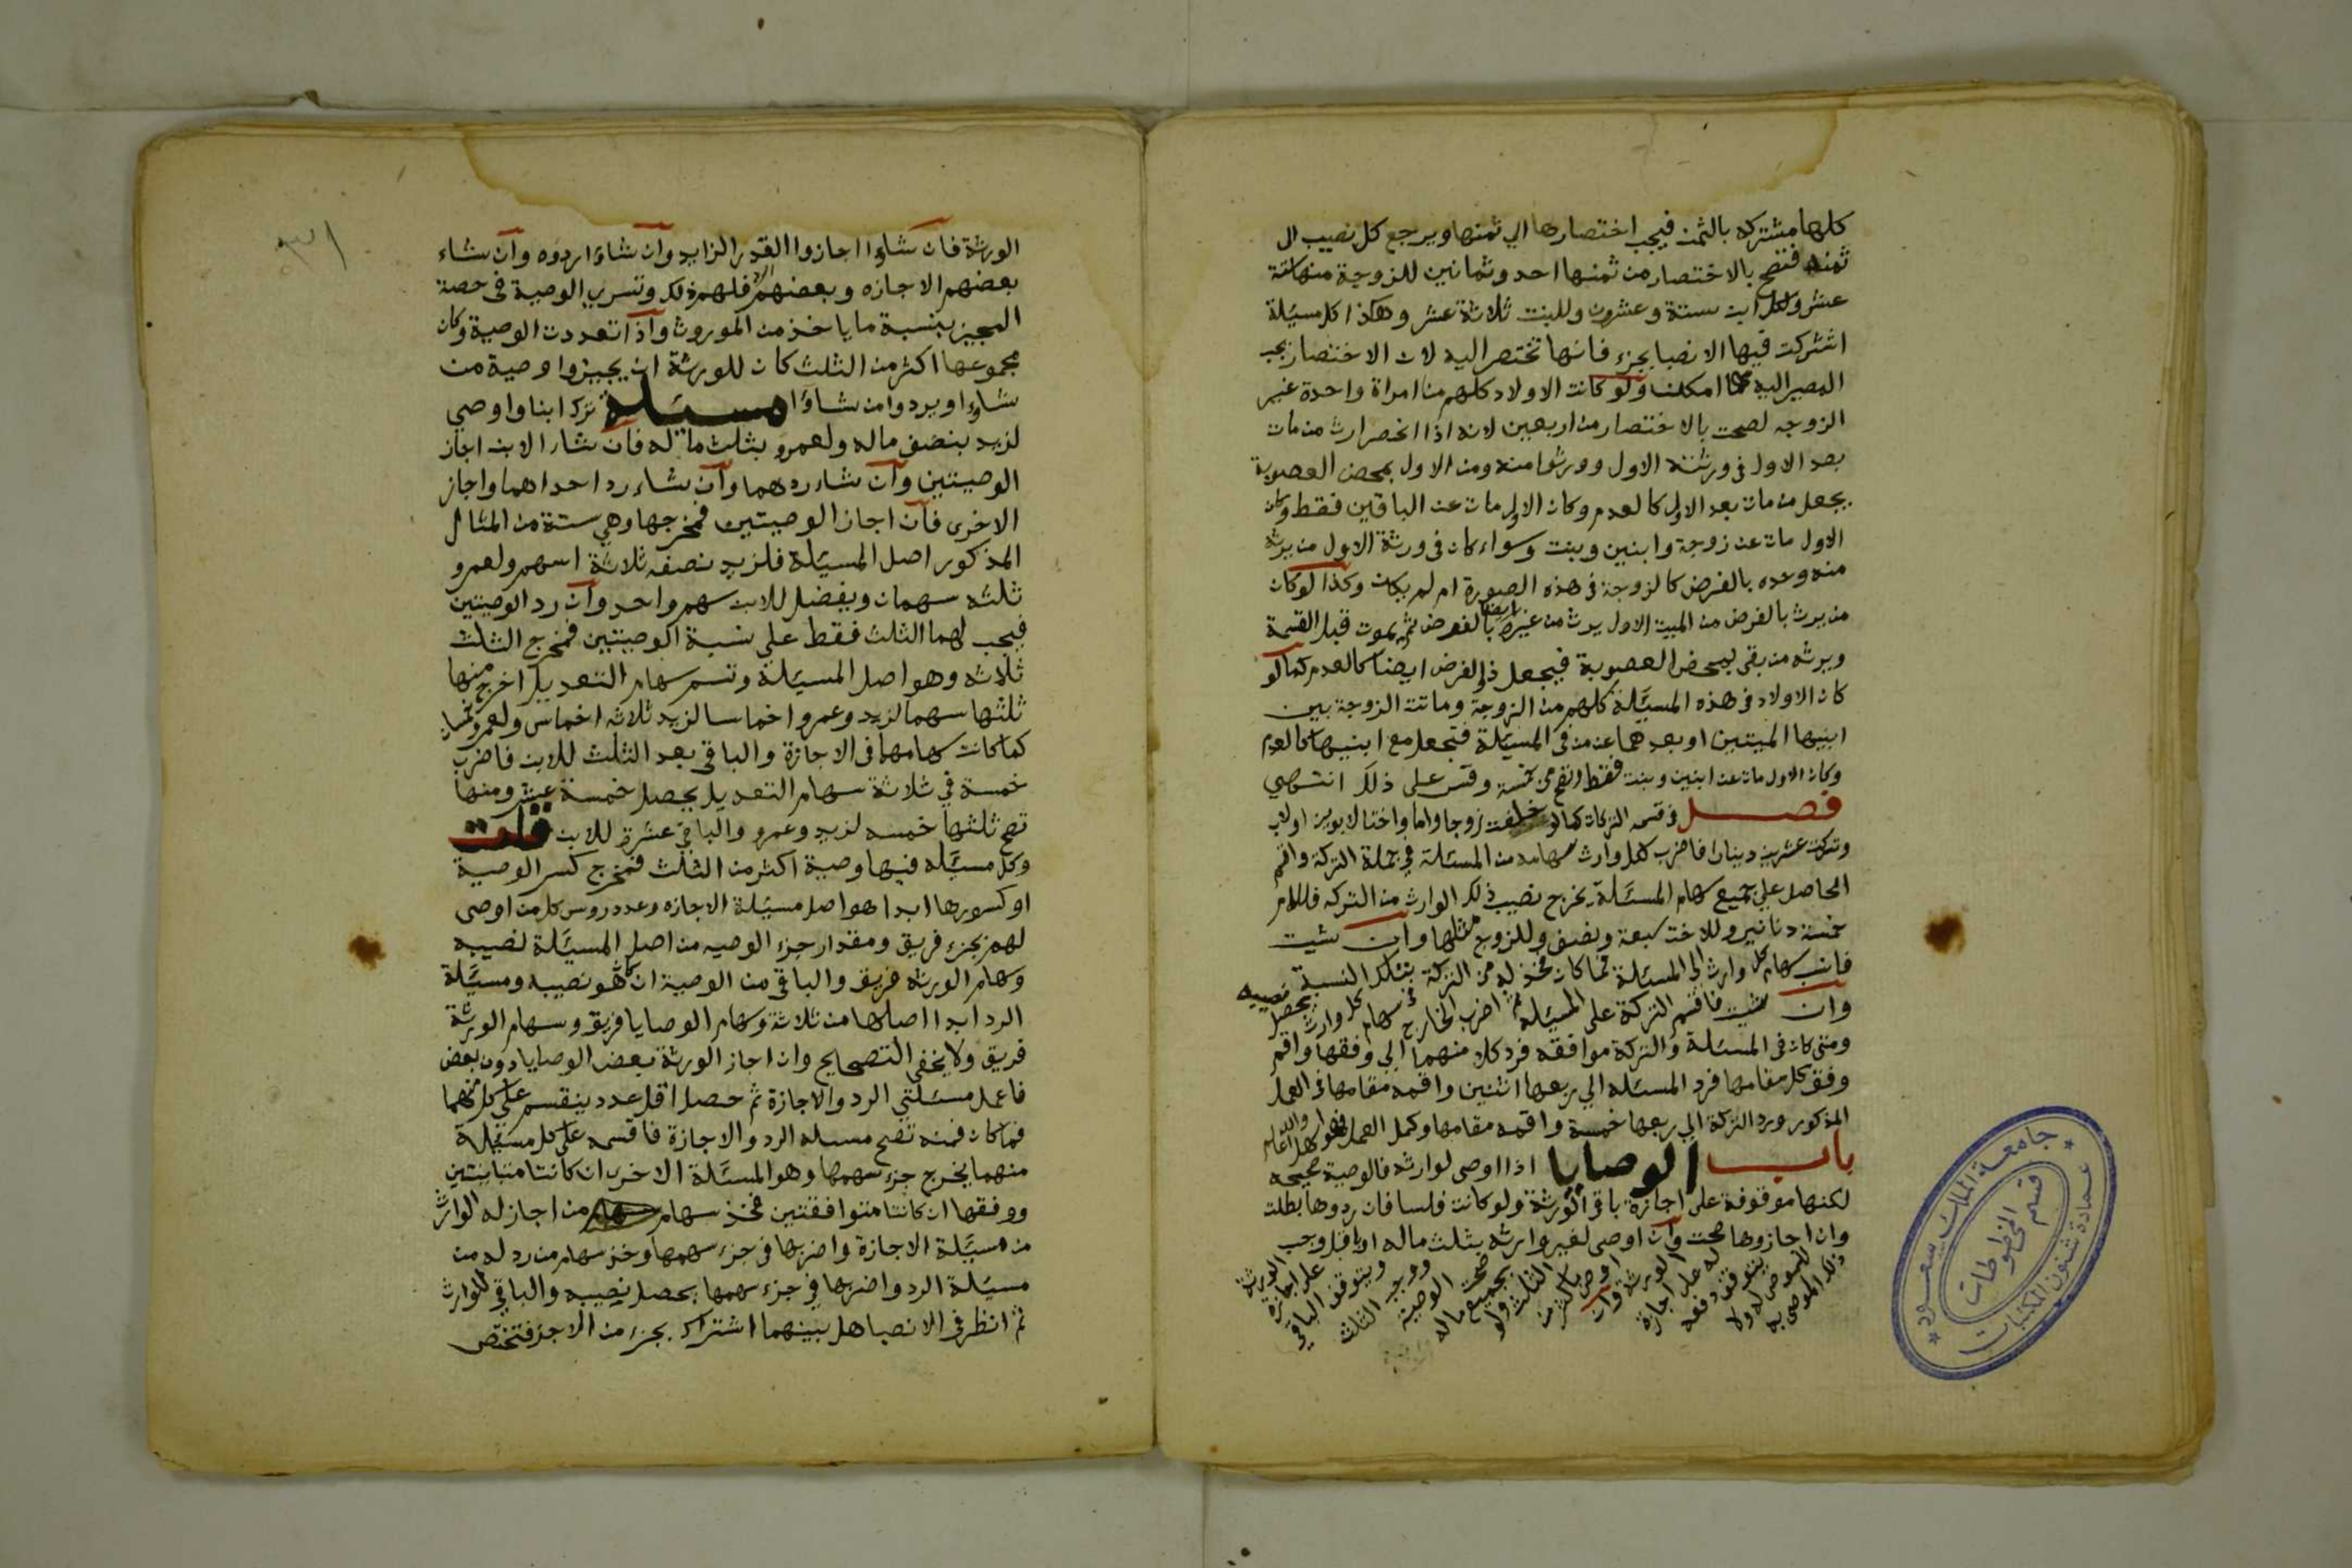 كلها مشتركه بالثمن فيجب اختصارها الي ثمنها ويرجع كل نصيب الي
ثمنه فتصح بالاختصار من ثمنها احد وثمانين للزوجة منها ستة
عشر ولكل ابن ستة وعشرون وللبنت ثلاثة عشر وهكذا كل مسيلة
اشتركت فيها الانصبا بجزء فانها تختصر اليه لان الاختصار يجب
المصير اليه مهما امكلنا ولو كانت الاولاد كلهم من امراة واحدة غير
الزوجه لصحت بالاختصار من اربعين لانه اذا انحصر ارث من مات
بعد الاول في ورثته الاول وورثوا منه ومن الاول بمحض العصوبة
يجعل من مات بعد الاول كالعدم وكان الاول مات عن الباقين فقط وكان
الاول مات عن زوجة وابنين وبنت وسواء كان في ورثة الاول من يرثه
منه وحده بالفرض كالزوجة في هذه الصورة ام لم يكن وكذا لو كان
من يرث بالفرض من الميت الاول يرث من غيره ايضا بالفرض ثم يموت قبل القسمة
ويرثه من بقي بمحض العصوبة فيجعل ذو الفرض ايضا كالعدم كما لو
كان الاولاد في هذه المسيلة كلهم من الزوجة وماتت الزوجة بين
ابنيها الميتين او بعدهما عن من في المسيلة فتجعل مع ابنيها كالعدم
وكان الاول مات عن ابنين وبنت فقط وتصح من خمسة وقس على ذلك انتهي
فصل في قسمه التركات كما لو خلفت زوجا واما واختا لابوين او لاب
وتركت عشرين دينارا فاضرب لكل وارث سهامه من المسئلة في جملة التركة واقسم
الحاصل علي جميع سهام المسئلة يخرج نصيب ذلك الوارث من التركه فللام
خمسة دنانير وللاخت سبعة ونصف وللزوج مثلها وان شيت
فانسب سهام كل وارث الي المسئلة فما كان فخذ له من التركة بتلك النسبة
وان شيت فاقسم التركة على المسيلة ثم اضرب الخارج في سهام كل وارث يحصل نصيبه
ومتى كان في المسئلة والتركة موافقه فرد كلا منهما الي وفقها واقم
وفق كل مقامها فرد المسئله الي ربعها اثنين واقمه مقامها في العمل
المذكور ورد التركة الي ربعها خمسة واقمه مقامها وكمل العمل والله اعلم
باب الوصايا اذا اوصى لوارثه فالوصية صحيحه
لكنها موقوفة على اجازة باقي الورثة ولو كانت فلسا فان ردوها بطلت
وان اجازوها صحت وان اوصى لغير وارثه بثلث ماله او باقل وجب
دفعه للموصى له ولا يتوقف على اجازة الورثة وان اوصى باكثر من الثلث ولو بجميع ماله صحت الوصية ووجب الثلث ويتوقف الباقي على اجازة الورثة
الورثة فان شاؤا اجازوا القدر الزايد وان شاؤا ردوه وان شاء
بعضهم الاجازه وبعضهم الرد فلهم ذلك وتسري الوصية في حصة
المجيز بنسبة ما ياخذ من الموروث واذا تعددت الوصية وكان
مجموعها اكثر من الثلث كان للورثة ان يجيزوا وصية من
شاؤا ويردوا من شاؤا مسيلة ترك ابنا واوصي
لزيد بنصف ماله ولعمرو بثلث ماله فان شاء الابن اجاز
الوصيتين وان شاء ردهما وان شاء رد احداهما واجاز
الاخرى فان اجاز الوصيتين فمخرجها وهي ستة من المثال
المذكور اصل المسيلة فلزيد نصفه ثلاثة اسهم ولعمرو
ثلثه سهمان ويفضل للابن سهم واحد وان رد الوصيتين
فيجب لهما الثلث فقط علي نسبة الوصيتين فمخرج الثلث
ثلاثه وهو اصل المسيلة وتسم سهام التعديل اخرج منها
ثلثها سهما لزيد وعمرو اخماسا لزيد ثلاثه اخماس ولعمرو خمسان
كما كانت سهامهما في الاجازة والباقي بعد الثلث للابن فاضرب
خمسة في ثلاثة سهام التعديل يحصل خمسة عشر ومنها
تصح ثلثها خمسه لزيد وعمرو والباقي عشرة للابن قلت
وكل مسيله فيها وصية اكثر من الثلث فمخرج كسر الوصية
او كسورها ابدا هو اصل مسيلة الاجازه وعدد روس كل من اوصى
لهم بجزء فريق ومقدار جزء الوصيه من اصل المسيلة نصيبه
وسهام الورثه فريق والباقي من الوصية ان هو نصيبه ومسيلة
الرد ابدا اصلها من ثلاثة وسهام الوصايا فريق وسهام الورثة
فريق ولا يخفى التصحيح وان اجاز الورثة بعض الوصايا دون بعض
فاعمل مسئلتي الرد والاجازة ثم حصل اقل عدد ينقسم علي كل منهما
فما كان فمنه تصح مسيله الرد والاجازة فاقسمه على كل مسيلة
منهما يخرج جزء سهمها وهو المسئلة الاخرى ان كانتا متباينتين
ووفقها ان كانتا متوافقتين فخذ سهام من اجاز له الوارث
من مسيلة الاجازة واضربها في جزء سهمها وخذ سهام من رد له من
مسيلة الرد واضربها في جزء سهمها يحصل نصيبه والباقي للوارث
ثم انظر في الانصبا هل بينهما اشتراك بجزء من الاجزا فتختص
جامعة الملك سعود
عمادة شئون المكتبات
قسم المخطوطات